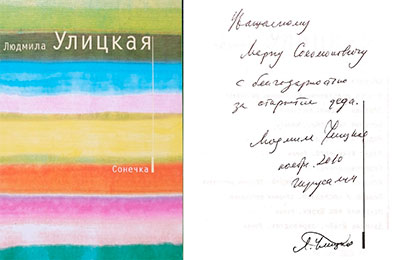 Людмила Улицкая
Сонечка
Уважаемому
Марку Соломоновичу
с благодарностью
за открытие деда.
Людмила Улицкая
ноябрь. 2010
Иерусалим
Л. Улицкая